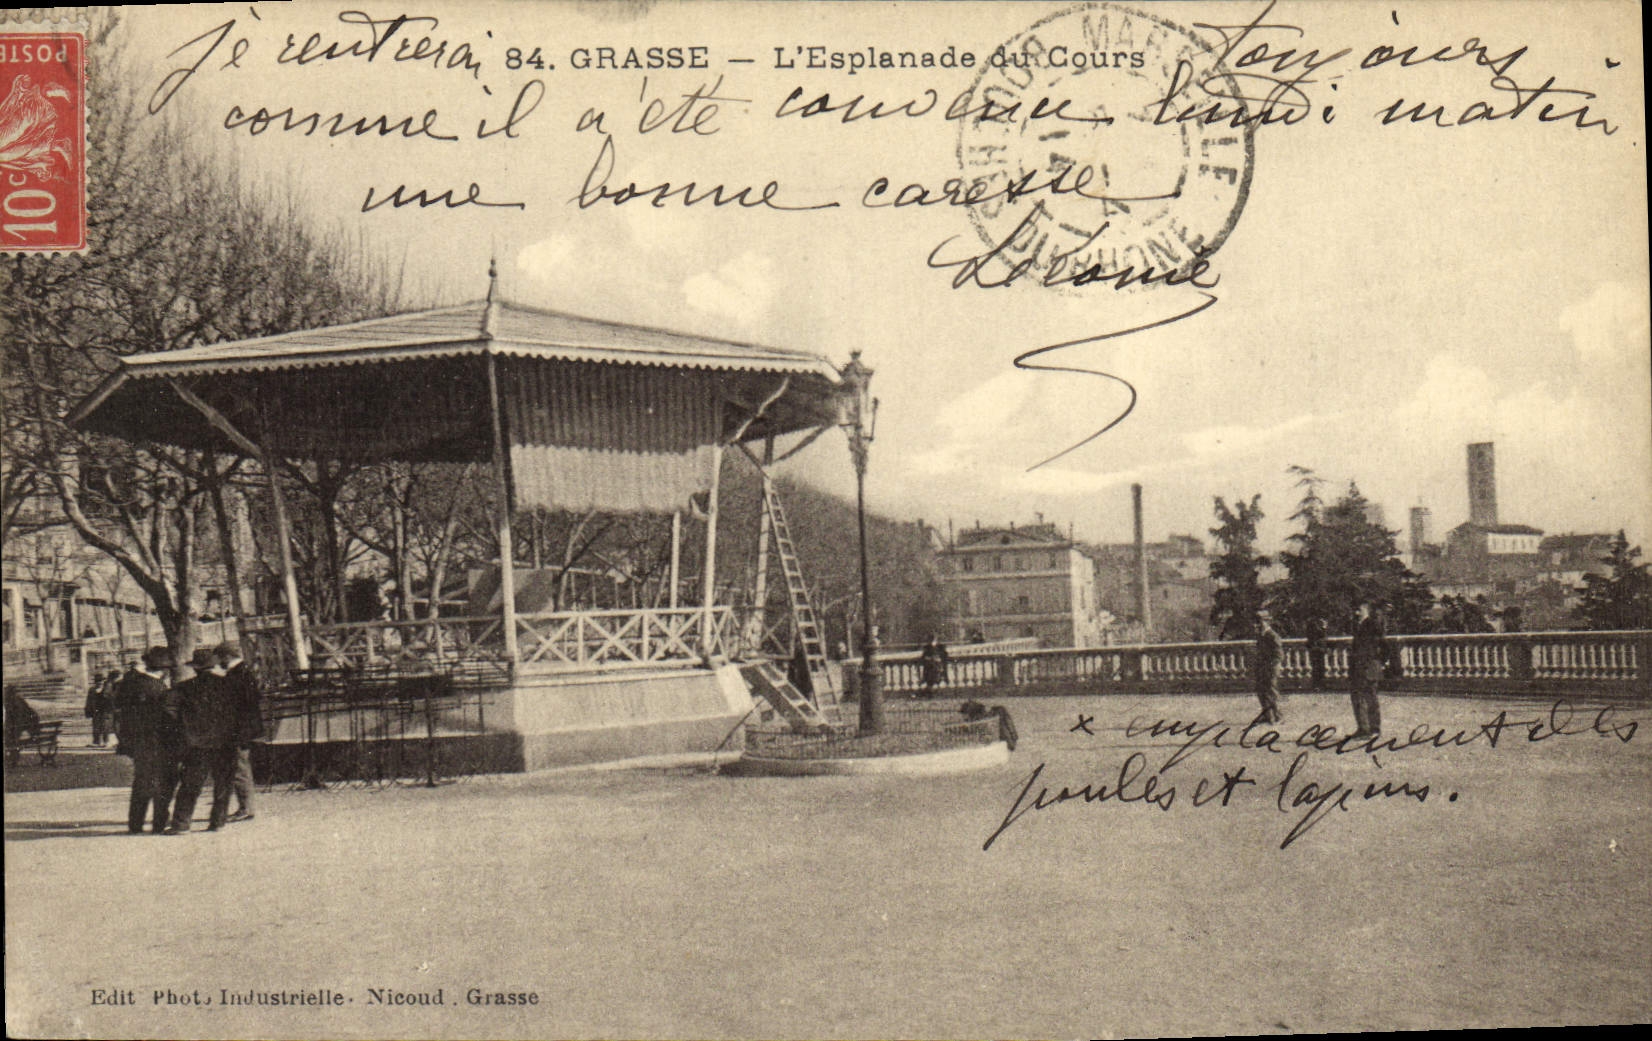 POSTES
10c
je rentrerai 84. GRASSE — L'Esplanade du Cours toujours
comme il a été convenu lundi matin
une bonne caresse
MARSEILLE
DU RHONE
Léonie
x emplacement des
poules et lapins.
Edit Photo Industrielle. Nicoud. Grasse